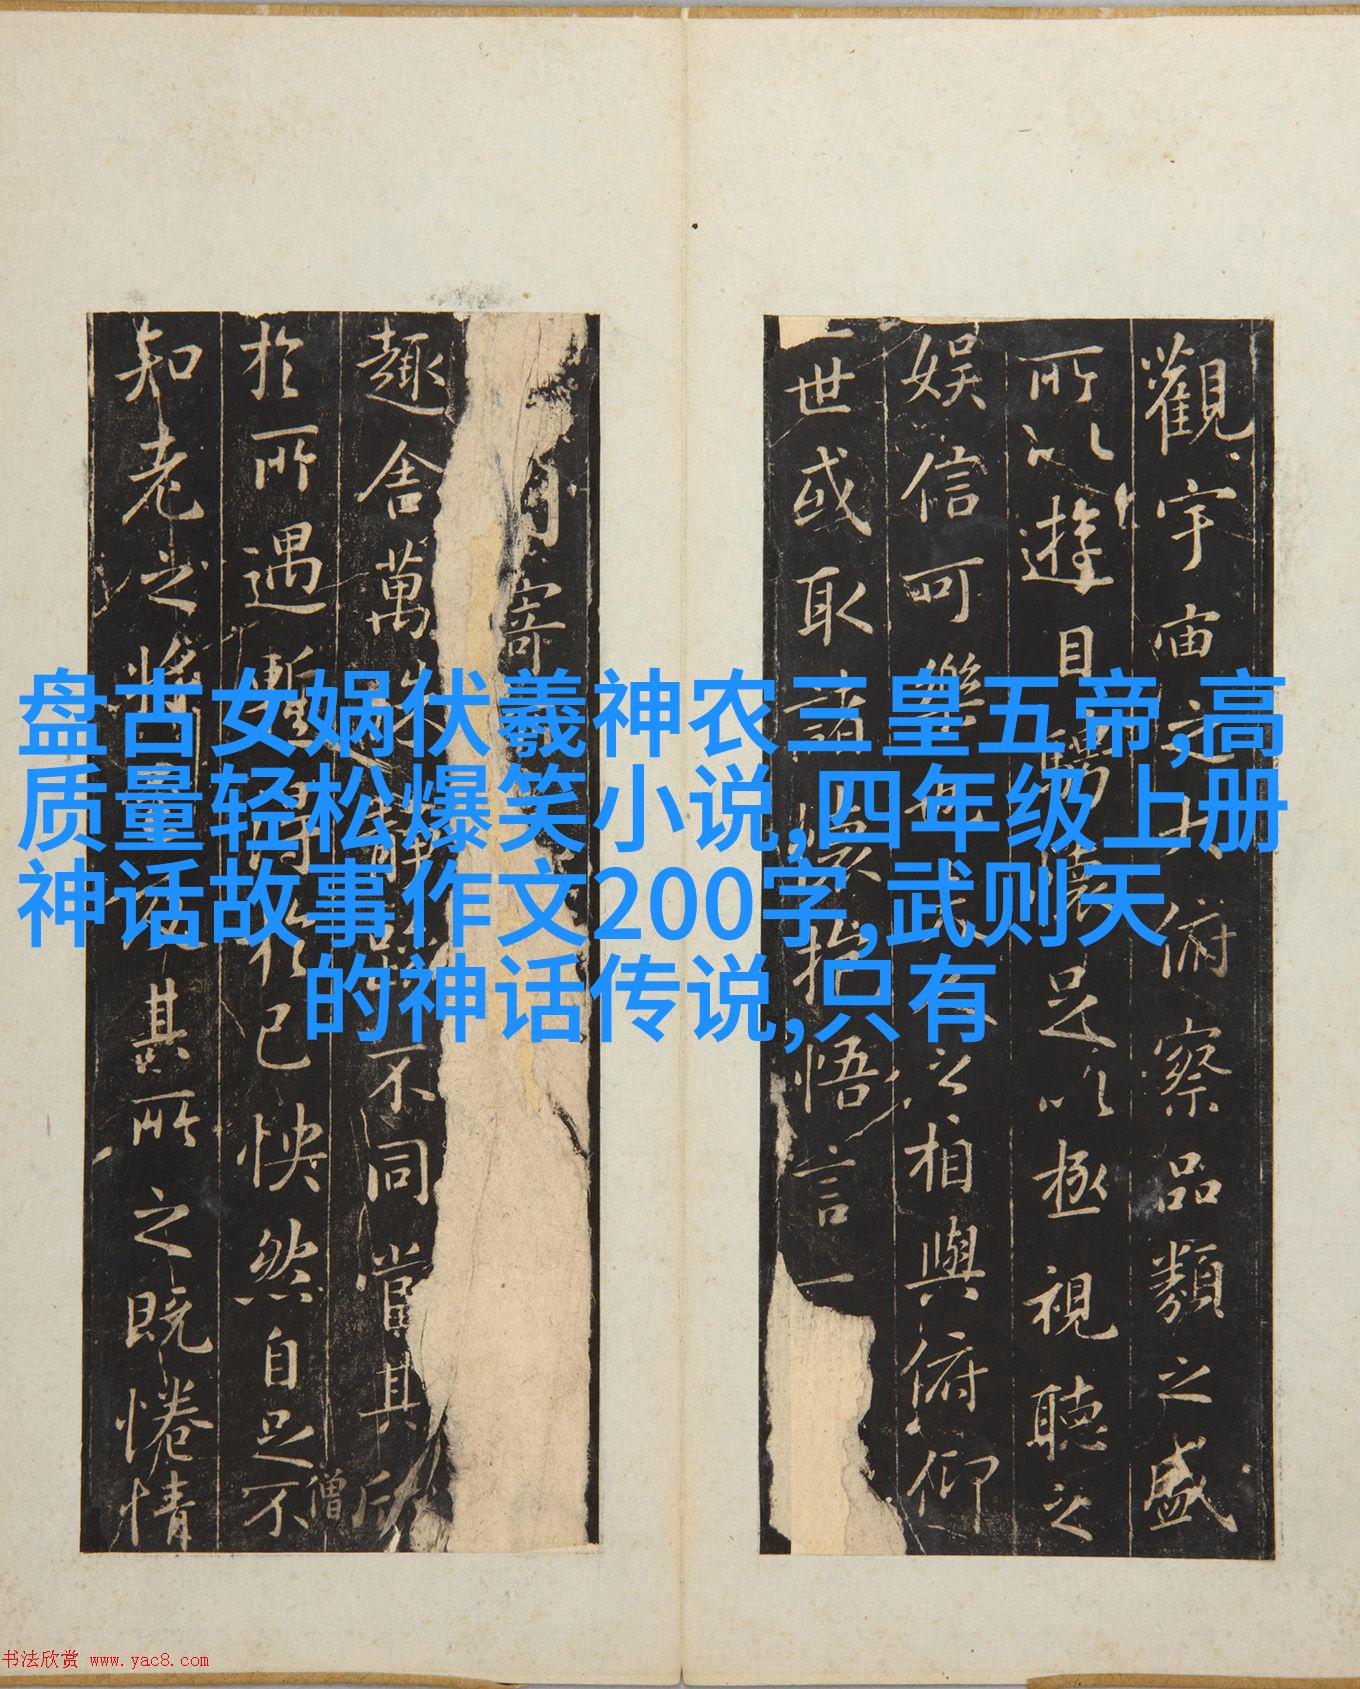 盘古女娲伏羲神农三皇五帝,高
质量轻松爆笑小说,四年级上册
神话故事作文200字,武则天
的神话传说,只有
觀宇宙之大俯察品類之盛
所以遊目騁懷足以極視聽之
娛信可樂也之相與俯仰
世或取諸懷抱悟言一
寄
趣舍萬殊靜不同當其欣
僧
於所遇暫得於己怏然自足不
知老之將其所之既惓情
书法欣赏 www.yac8.com